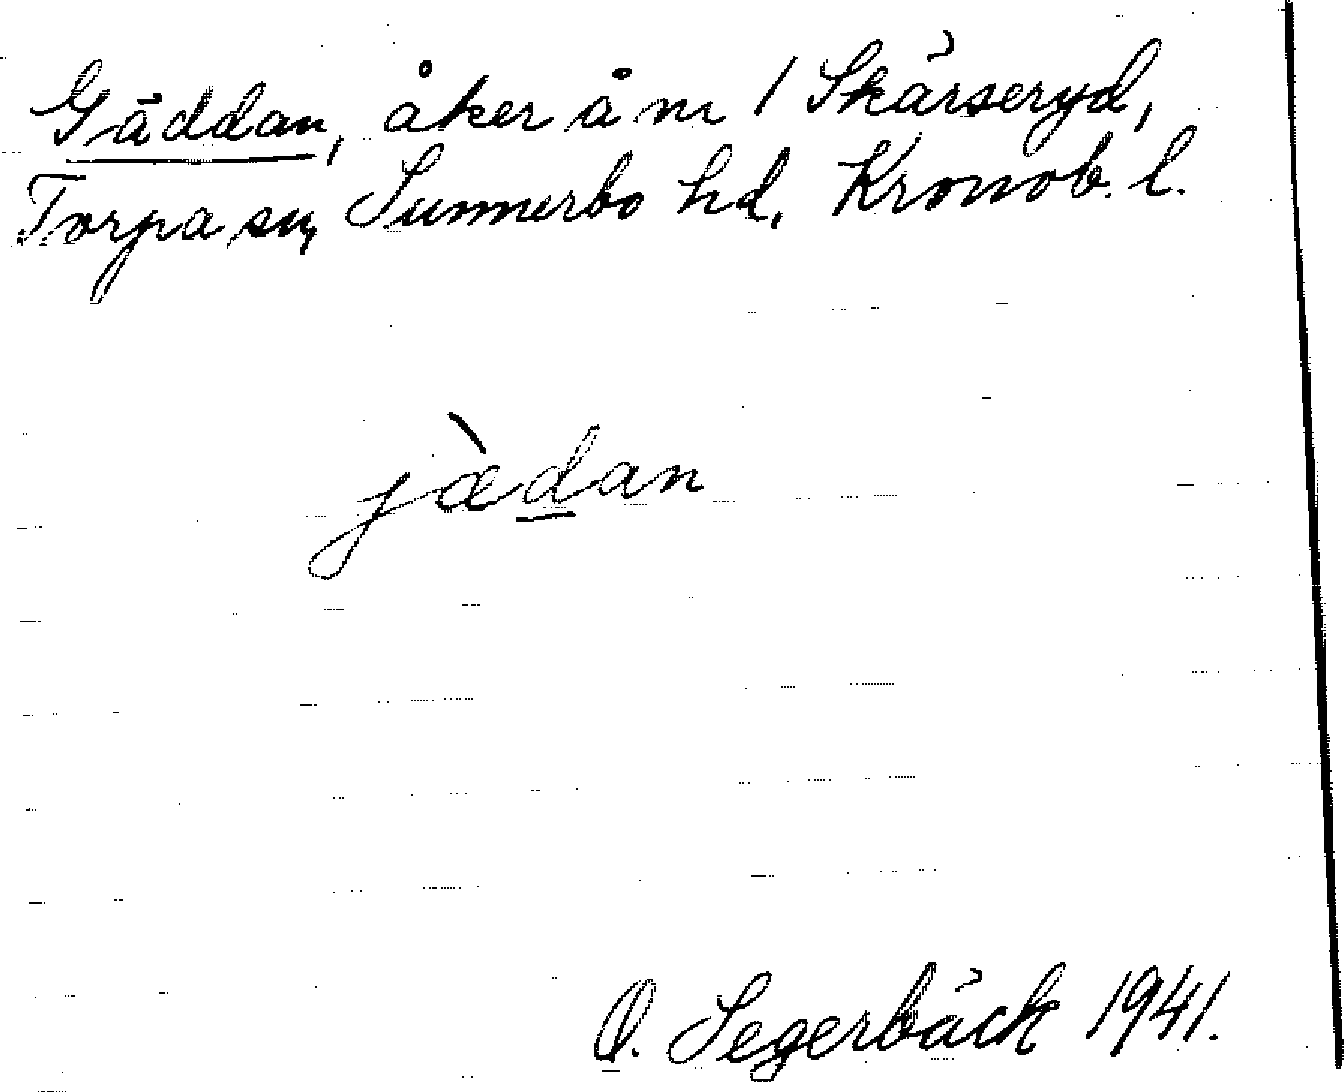 Gäddan, åker å nr 1 Skärseryd,
Torpa sn, Sunnerbo hd, Kronob. l.
jæ̀d̲an
O. Segerbäck 1941.